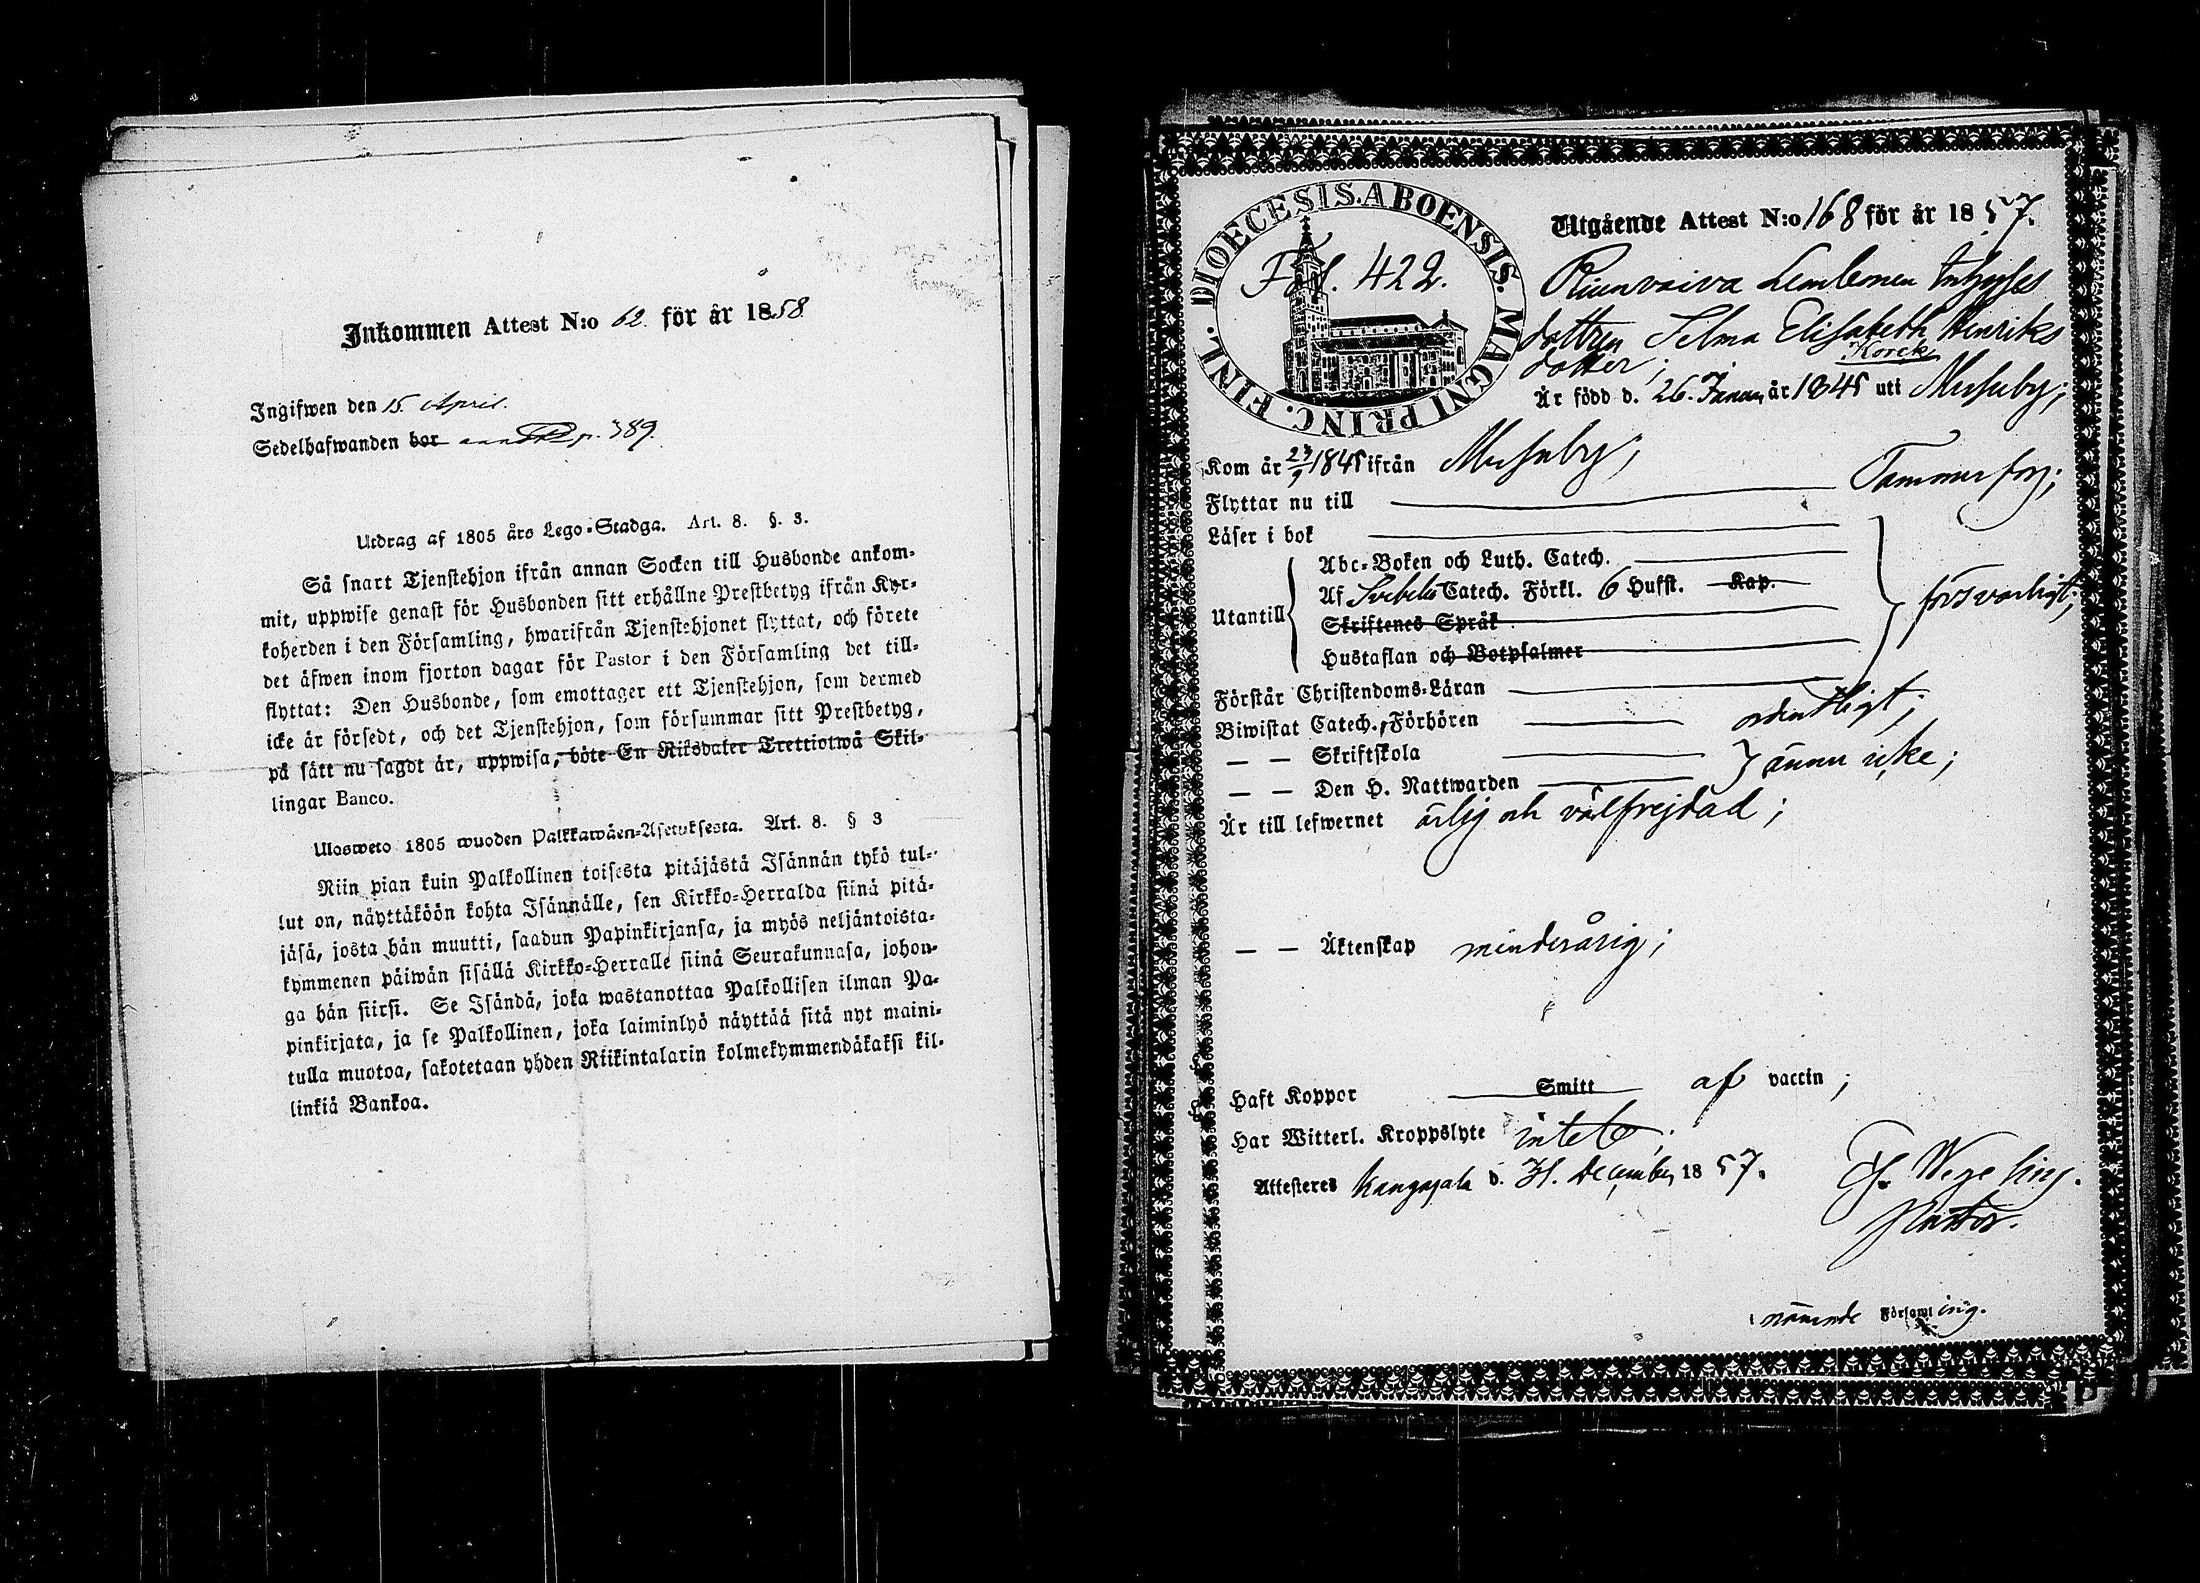 Inkommen Attest N:o 62. för år 1858
Ingifwen den 15 April.
Sedelhafwanden bor p. 389.
Utdrag af 1805 års Lego-Stadga. Art. 8. §. 3.
Så snart Tjenstehjon ifrån annan Socken till Husbonde ankom-
mit, uppwise genast för Husbonden sitt erhållne Prestbetyg ifrån Kyr-
koherden i den Församling, hwarifrån Tjenstehjonet flyttat, och förete
det äfwen inom fjorton dagar för Pastor i den Församling det till-
flyttat: Den Husbonde, som emottager ett Tjenstehjon, som dermed
icke är försedt, och det Tjenstehjon, som försummar sitt Prestbetyg,
på sätt nu sagdt är, uppwisa, böte En Riksdaler Trettiotwå Skil-
lingar Banco.
Ulosweto 1805 wuoden Palkkawäen-Asetuksesta. Art. 8. § 3
Niin pian kuin Palkollinen toisesta pitäjästä Isännän tykö tul-
lut on, näyttäköön kohta Isännälle, sen Kirkko-Herralda siinä pitä-
jäsä, josta hän muutti, saadun Papinkirjansa, ja myös neljäntoista-
kymmenen päiwän sisällä Kirkko-Herralle siinä Seurakunnasa, johon-
ga hän siirsi. Se Isändä, joka wastanottaa Palkollisen ilman Pa-
pinkirjata, ja se Palkollinen, joka laiminlyö näyttää sitä nyt maini-
tulla muotoa, sakotetaan yhden Riikintalarin kolmekymmendäkaksi kil-
linkiä Bankoa.
DIOECESIS. ABOENSIS. MAGNI PRINC. FINL.
Fol. 422.
Utgående Attest N:o 168 för år 1857.
Inhyses
dottren Selma Elisabeth Henriks
dotter; Korck
Är född d. 26. Januari år 1845 uti Messuby;
Kom år 23/9 1845 ifrån Messuby;
Flyttar nu till Tammerfors;
Läser i bok
Utantill
Abc-Boken och Luth. Catech.
Af Svebelii Catech. Förkl. 6 Hufst. Kap.
Skriftenes Språk
Hustaflan och Botpsalmer
försvarligt;
Förstår Christendoms-Läran
Biwistat Catech. Förhören ordentligt;
— — Skriftskola
— — Den H. Nattwarden ännu icke;
Är till lefwernet ärlig och välfrejdad;
— — Äktenskap minderårig;
Haft Koppor Smitt af vaccin;
Har Witterl. Kroppslyte intet;
Attesteres Kangasala d. 31. December 1857.
Pastor.
i nämnde Församling.